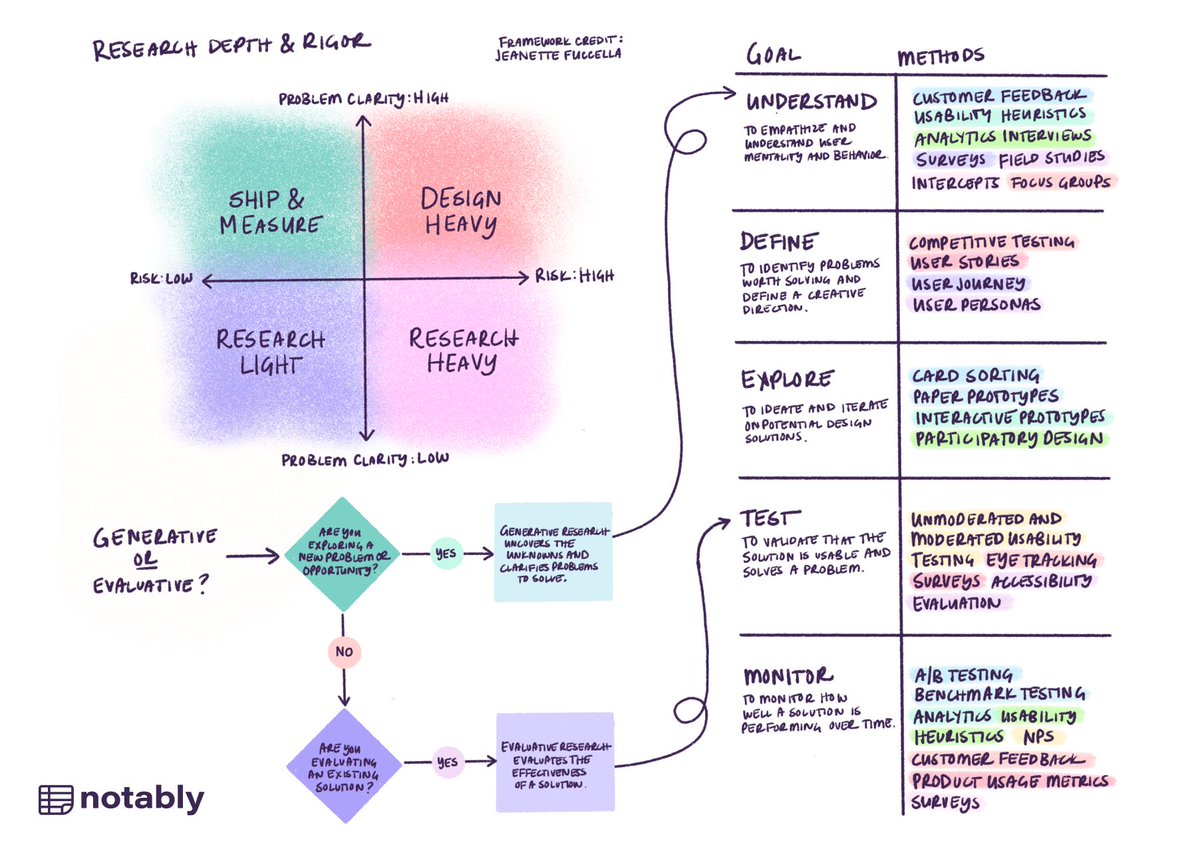 RESEARCH DEPTH & RIGOR
FRAMEWORK CREDIT:
JEANETTE FUCCELLA
PROBLEM CLARITY: HIGH
SHIP &
MEASURE
DESIGN
HEAVY
RISK: LOW
RISK: HIGH
RESEARCH
LIGHT
RESEARCH
HEAVY
PROBLEM CLARITY: LOW
GENERATIVE
OR
EVALUATIVE?
ARE YOU
EXPLORING A
NEW PROBLEM OR
OPPORTUNITY?
YES
GENERATIVE RESEARCH
UNCOVERS THE
UNKNOWNS AND
CLARIFIES PROBLEMS
TO SOLVE.
NO
ARE YOU
EVALUATING
AN EXISTING
SOLUTION?
YES
EVALUATIVE RESEARCH
EVALUATES THE
EFFECTIVENESS
OF A SOLUTION.
notably
GOAL
METHODS
UNDERSTAND
TO EMPATHIZE AND
UNDERSTAND USER
MENTALITY AND BEHAVIOR.
CUSTOMER FEEDBACK
USABILITY HEURISTICS
ANALYTICS INTERVIEWS
SURVEYS FIELD STUDIES
INTERCEPTS FOCUS GROUPS
DEFINE
TO IDENTIFY PROBLEMS
WORTH SOLVING AND
DEFINE A CREATIVE
DIRECTION.
COMPETITIVE TESTING
USER STORIES
USER JOURNEY
USER PERSONAS
EXPLORE
TO IDEATE AND ITERATE
ON POTENTIAL DESIGN
SOLUTIONS.
CARD SORTING
PAPER PROTOTYPES
INTERACTIVE PROTOTYPES
PARTICIPATORY DESIGN
TEST
TO VALIDATE THAT THE
SOLUTION IS USABLE AND
SOLVES A PROBLEM.
UNMODERATED AND
MODERATED USABILITY
TESTING EYE TRACKING
SURVEYS ACCESSIBILITY
EVALUATION
MONITOR
TO MONITOR HOW
WELL A SOLUTION IS
PERFORMING OVER TIME.
A/B TESTING
BENCHMARK TESTING
ANALYTICS USABILITY
HEURISTICS NPS
CUSTOMER FEEDBACK
PRODUCT USAGE METRICS
SURVEYS